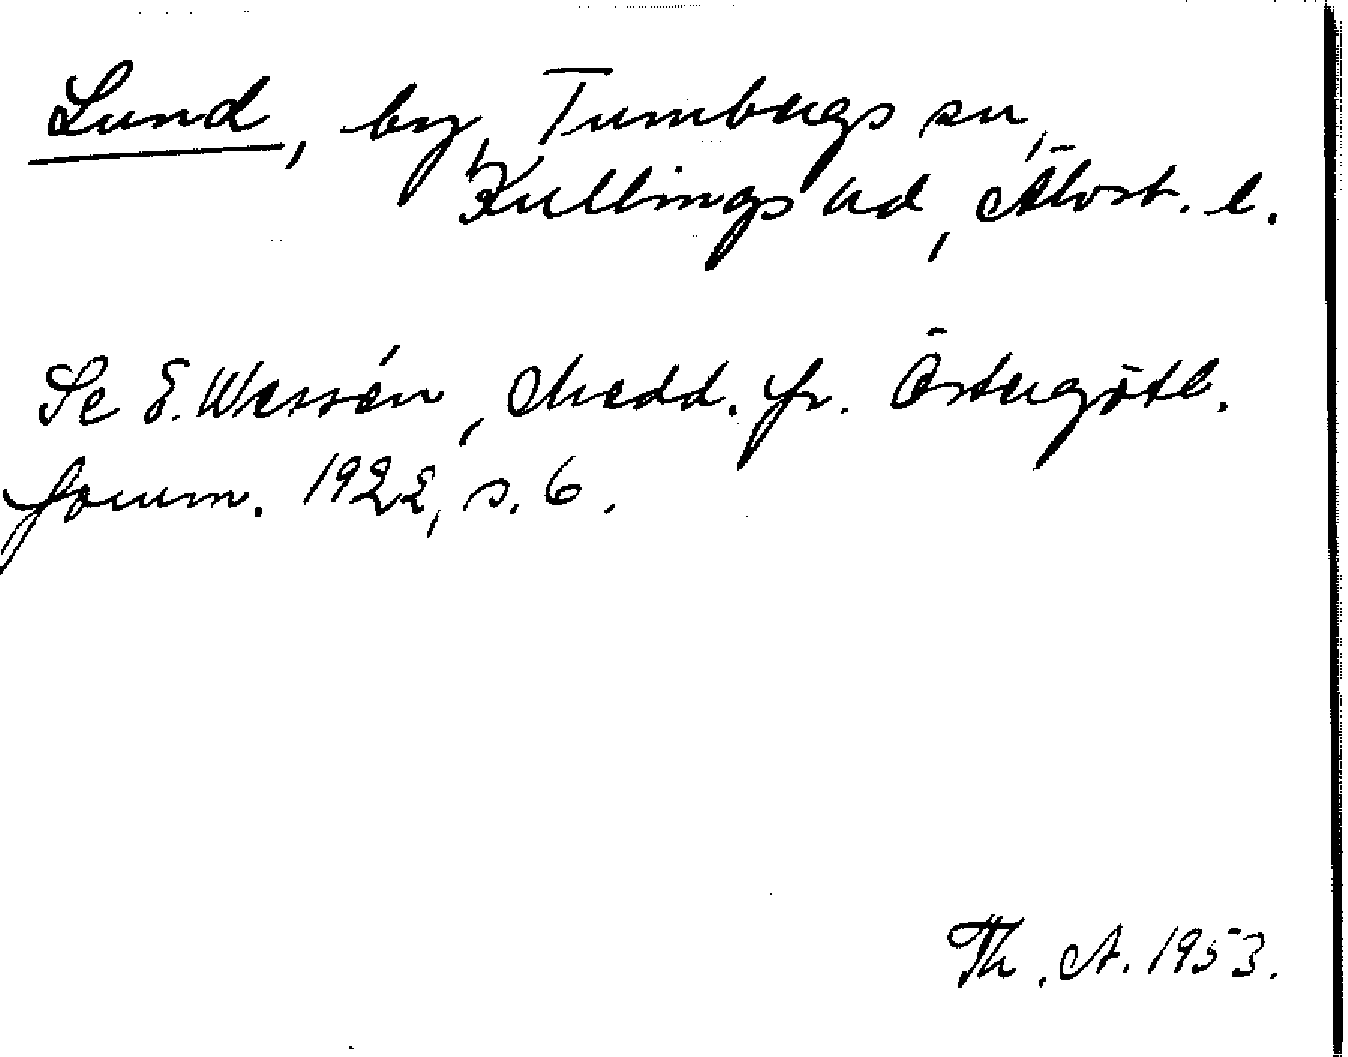 Lund, by, Tumbergs sn,
Kullings hd, Älvsb. l.
Se E. Wessén, Medd. fr. Östergötl.
fornm. 1922, s. 6.
Th. A. 1953.